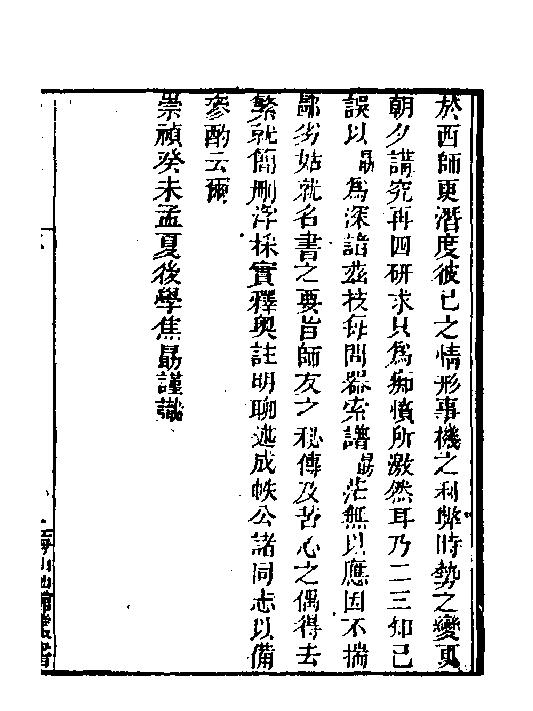 於西師更潛度彼己之情形事機之利弊時勢之變更
朝夕講究再四研求只爲痴憤所激然耳乃二三知己
誤以勗爲深諳茲技每問器索譜勗茫無以應因不揣
鄙劣姑就名書之要旨師友之秘傳及苦心之偶得去
繁就簡刪浮採實釋奧註明聊述成帙公諸同志以備
參酌云爾
崇禎癸未孟夏後學焦勗謹識
海山仙館叢書